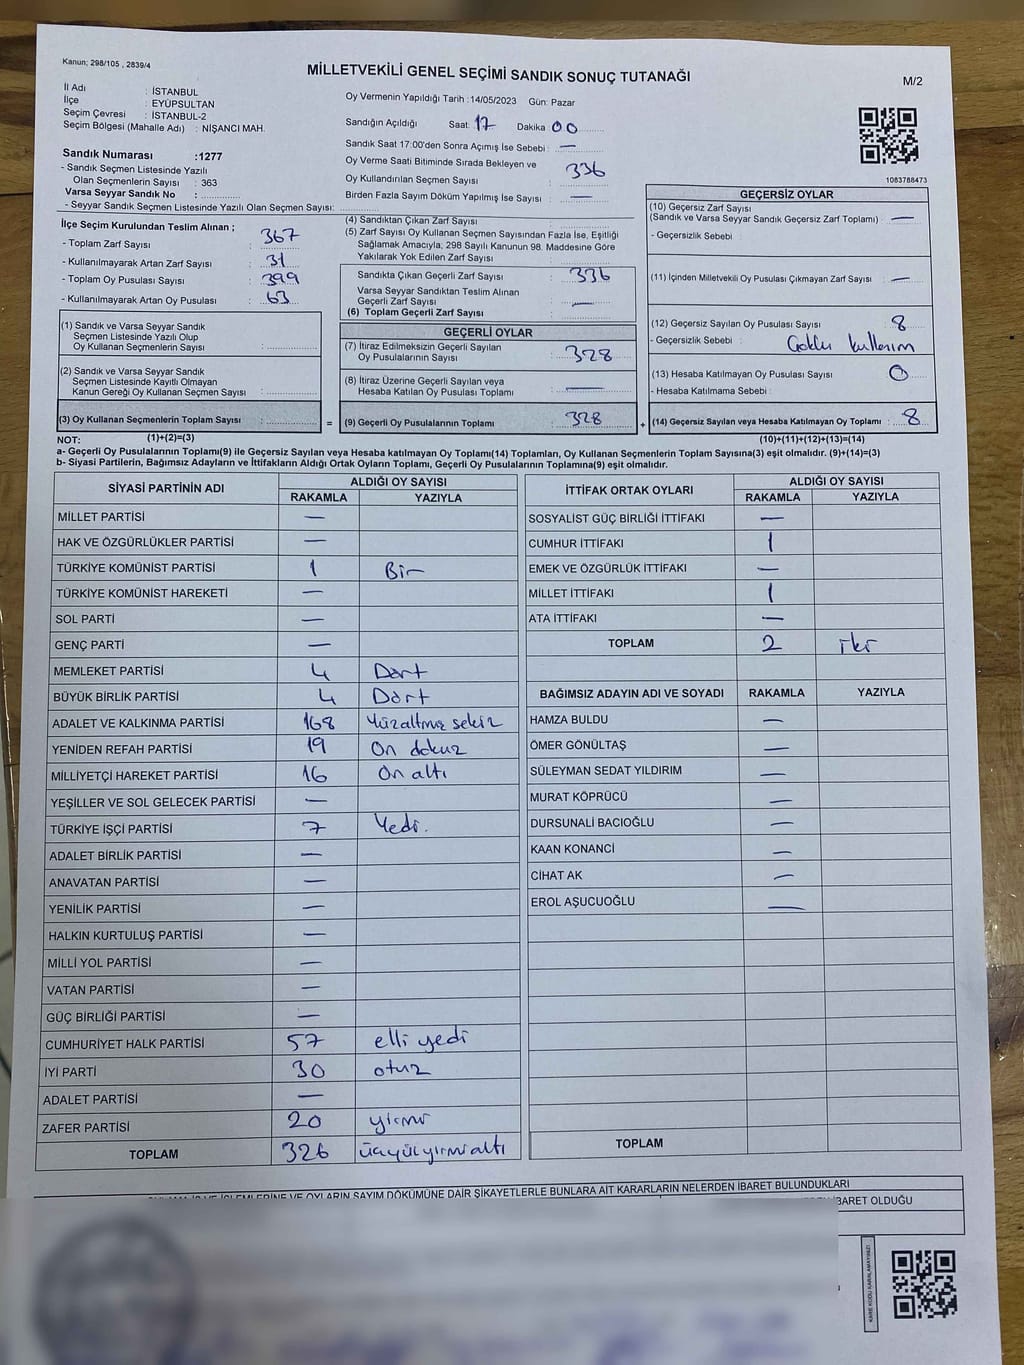 Kanun; 298/105 , 2839/4
MİLLETVEKİLİ GENEL SEÇİMİ SANDIK SONUÇ TUTANAĞI
M/2
İl Adı : İSTANBUL
İlçe : EYÜPSULTAN
Seçim Çevresi : İSTANBUL-2
Seçim Bölgesi (Mahalle Adı) : NİŞANCI MAH.
Sandık Numarası :1277
- Sandık Seçmen Listesinde Yazılı
Olan Seçmenlerin Sayısı : 363
Varsa Seyyar Sandık No :
- Seyyar Sandık Seçmen Listesinde Yazılı Olan Seçmen Sayısı:
Oy Vermenin Yapıldığı Tarih :14/05/2023 Gün: Pazar
Sandığın Açıldığı Saat: 17 Dakika 00
Sandık Saat 17:00'den Sonra Açımış İse Sebebi : —
Oy Verme Saati Bitiminde Sırada Bekleyen ve
Oy Kullandırılan Seçmen Sayısı : 336
Birden Fazla Sayım Döküm Yapılmış İse Sayısı : —
1083788473
İlçe Seçim Kurulundan Teslim Alınan ;
- Toplam Zarf Sayısı : 367
- Kullanılmayarak Artan Zarf Sayısı : 31
- Toplam Oy Pusulası Sayısı : 399
- Kullanılmayarak Artan Oy Pusulası : 63
(1) Sandık ve Varsa Seyyar Sandık
Seçmen Listesinde Yazılı Olup
Oy Kullanan Seçmenlerin Sayısı :
(2) Sandık ve Varsa Seyyar Sandık
Seçmen Listesinde Kayıtlı Olmayan
Kanun Gereği Oy Kullanan Seçmen Sayısı :
(3) Oy Kullanan Seçmenlerin Toplam Sayısı :
(4) Sandıktan Çıkan Zarf Sayısı :
(5) Zarf Sayısı Oy Kullanan Seçmen Sayısından Fazla İse, Eşitliği
Sağlamak Amacıyla; 298 Sayılı Kanunun 98. Maddesine Göre
Yakılarak Yok Edilen Zarf Sayısı :
Sandıkta Çıkan Geçerli Zarf Sayısı : 336
Varsa Seyyar Sandıktan Teslim Alınan
Geçerli Zarf Sayısı : —
(6) Toplam Geçerli Zarf Sayısı :
GEÇERLİ OYLAR
(7) İtiraz Edilmeksizin Geçerli Sayılan
Oy Pusulalarının Sayısı : 328
(8) İtiraz Üzerine Geçerli Sayılan veya
Hesaba Katılan Oy Pusulası Toplamı : —
= (9) Geçerli Oy Pusulalarının Toplamı : 328
GEÇERSİZ OYLAR
(10) Geçersiz Zarf Sayısı
(Sandık ve Varsa Seyyar Sandık Geçersiz Zarf Toplamı) : —
- Geçersizlik Sebebi :
(11) İçinden Milletvekili Oy Pusulası Çıkmayan Zarf Sayısı : —
(12) Geçersiz Sayılan Oy Pusulası Sayısı : 8
- Geçersizlik Sebebi : Çoklu kullanım
(13) Hesaba Katılmayan Oy Pusulası Sayısı : 0
- Hesaba Katılmama Sebebi :
+ (14) Geçersiz Sayılan veya Hesaba Katılmayan Oy Toplamı : 8
NOT: (1)+(2)=(3)
(10)+(11)+(12)+(13)=(14)
a- Geçerli Oy Pusulalarının Toplamı(9) ile Geçersiz Sayılan veya Hesaba katılmayan Oy Toplamı(14) Toplamları, Oy Kullanan Seçmenlerin Toplam Sayısına(3) eşit olmalıdır. (9)+(14)=(3)
b- Siyasi Partilerin, Bağımsız Adayların ve İttifakların Aldığı Ortak Oyların Toplamı, Geçerli Oy Pusulalarının Toplamına(9) eşit olmalıdır.
SİYASİ PARTİNİN ADI ALDIĞI OY SAYISI
RAKAMLA YAZIYLA
MİLLET PARTİSİ —
HAK VE ÖZGÜRLÜKLER PARTİSİ —
TÜRKİYE KOMÜNİST PARTİSİ 1 Bir
TÜRKİYE KOMÜNİST HAREKETİ —
SOL PARTİ —
GENÇ PARTİ —
MEMLEKET PARTİSİ 4 Dört
BÜYÜK BİRLİK PARTİSİ 4 Dört
ADALET VE KALKINMA PARTİSİ 168 Yüzaltmış sekiz
YENİDEN REFAH PARTİSİ 19 On dokuz
MİLLİYETÇİ HAREKET PARTİSİ 16 On altı
YEŞİLLER VE SOL GELECEK PARTİSİ —
TÜRKİYE İŞÇİ PARTİSİ 7 Yedi.
ADALET BİRLİK PARTİSİ —
ANAVATAN PARTİSİ —
YENİLİK PARTİSİ —
HALKIN KURTULUŞ PARTİSİ —
MİLLİ YOL PARTİSİ —
VATAN PARTİSİ —
GÜÇ BİRLİĞİ PARTİSİ —
CUMHURİYET HALK PARTİSİ 57 elli yedi
İYİ PARTİ 30 otuz
ADALET PARTİSİ —
ZAFER PARTİSİ 20 yirmi
TOPLAM 326 üçyüzyirmialtı
İTTİFAK ORTAK OYLARI ALDIĞI OY SAYISI
RAKAMLA YAZIYLA
SOSYALİST GÜÇ BİRLİĞİ İTTİFAKI —
CUMHUR İTTİFAKI 1
EMEK VE ÖZGÜRLÜK İTTİFAKI —
MİLLET İTTİFAKI 1
ATA İTTİFAKI —
TOPLAM 2 iki
BAĞIMSIZ ADAYIN ADI VE SOYADI RAKAMLA YAZIYLA
HAMZA BULDU —
ÖMER GÖNÜLTAŞ —
SÜLEYMAN SEDAT YILDIRIM —
MURAT KÖPRÜCÜ —
DURSUNALİ BACIOĞLU —
KAAN KONANCİ —
CİHAT AK —
EROL AŞUCUOĞLU —
TOPLAM
VE OYLARIN SAYIM DÖKÜMÜNE DAİR ŞİKAYETLERLE BUNLARA AİT KARARLARIN NELERDEN İBARET BULUNDUKLARI
İBARET OLDUĞU
KARE KODU KARALAMAYINIZ!